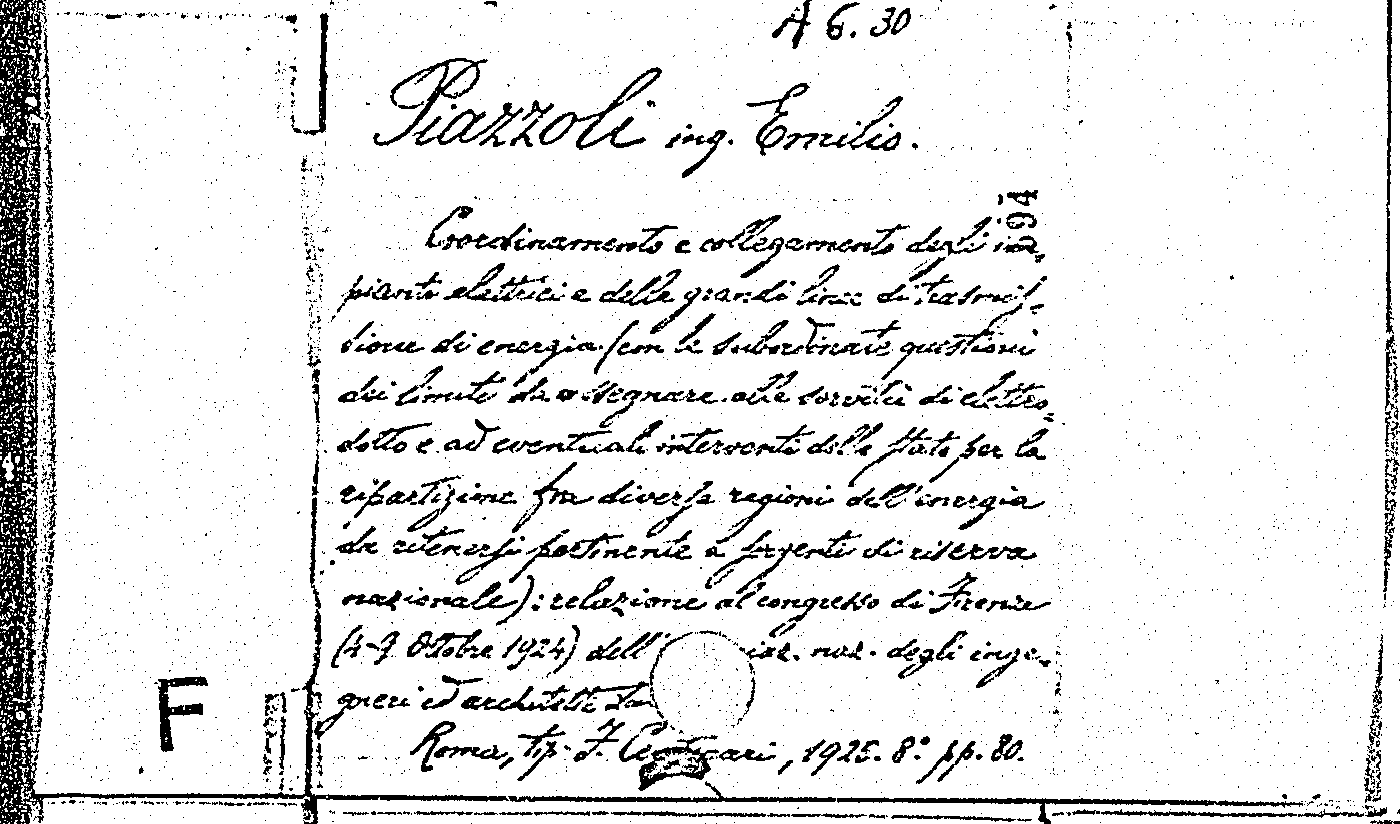 A 6. 30
Piazzoli ing. Emilio.
Coordinamento e collegamento degli im=
pianti elettrici e delle grandi linee di trasmis=
sione di energia (con le subordinate questioni
dei limiti da assegnare alle servitù di elettro=
dotto e ad eventuali interventi dello Stato per la
ripartizione fra diverse regioni dell'energia
da ritenersi pertinente a sorgenti di riserva
nazionale): relazione al congresso di Firenze
(4-9 Ottobre 1924) dell' naz. degli inge=
gneri ed architetti
Roma, tip. F. 1925. 8° pp. 80.
F